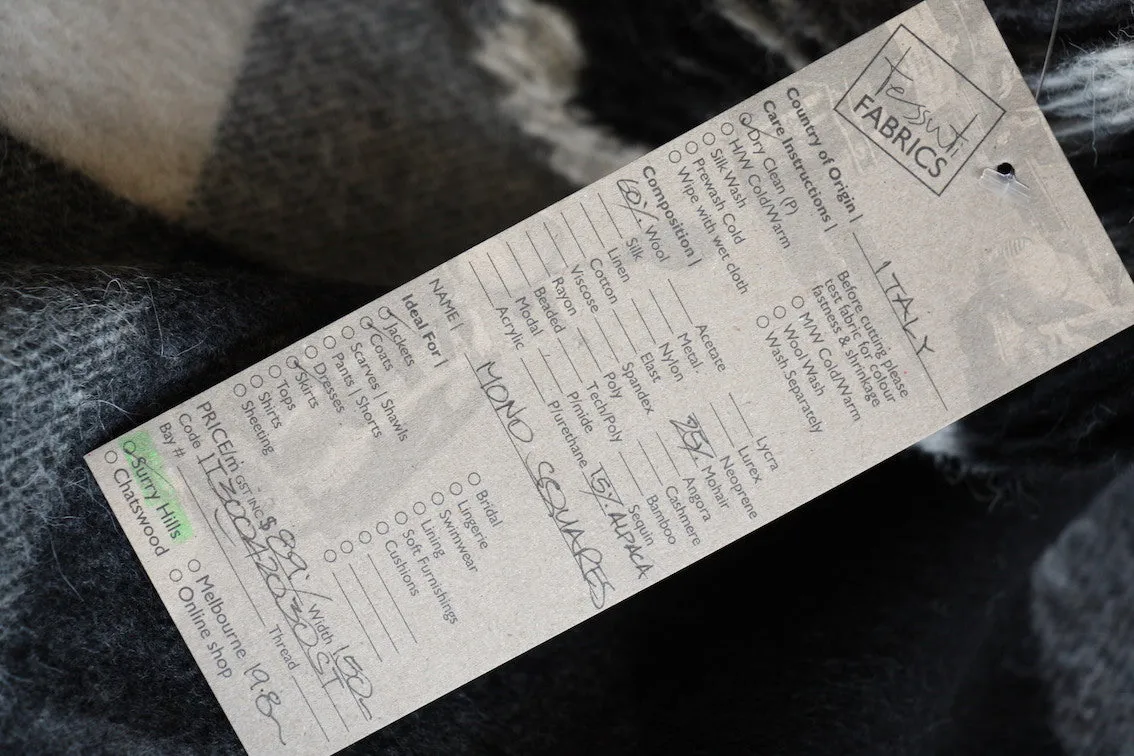 tessuti
FABRICS
Country of Origin | ITALY
Care Instructions |
Dry Clean (P)
H/W Cold/Warm
Silk Wash
Prewash Cold
Wipe with wet cloth
Before cutting please
test fabric for colour
fastness & shrinkage
M/W Cold/Warm
Wool Wash
Wash Separately
Composition |
60% Wool
Silk
Linen
Cotton
Viscose
Rayon
Beaded
Modal
Acrylic
Acetate
Metal
Nylon
Elast
Spandex
Poly
Tech/Poly
P/mide
P/urethane
Lycra
Lurex
Neoprene
25% Mohair
Angora
Cashmere
Bamboo
Sequin
15% ALPACA
NAME | MONO SQUARES
Ideal For |
Jackets
Coats
Scarves | Shawls
Pants | Shorts
Dresses
Skirts
Tops
Shirts
Sheeting
Bridal
Lingerie
Swimwear
Lining
Soft Furnishings
Cushions
PRICE/m GST INC $ 89.- / Width 150
Code
Bay # Thread
Surry Hills
Chatswood
Melbourne 19.8m
Online shop